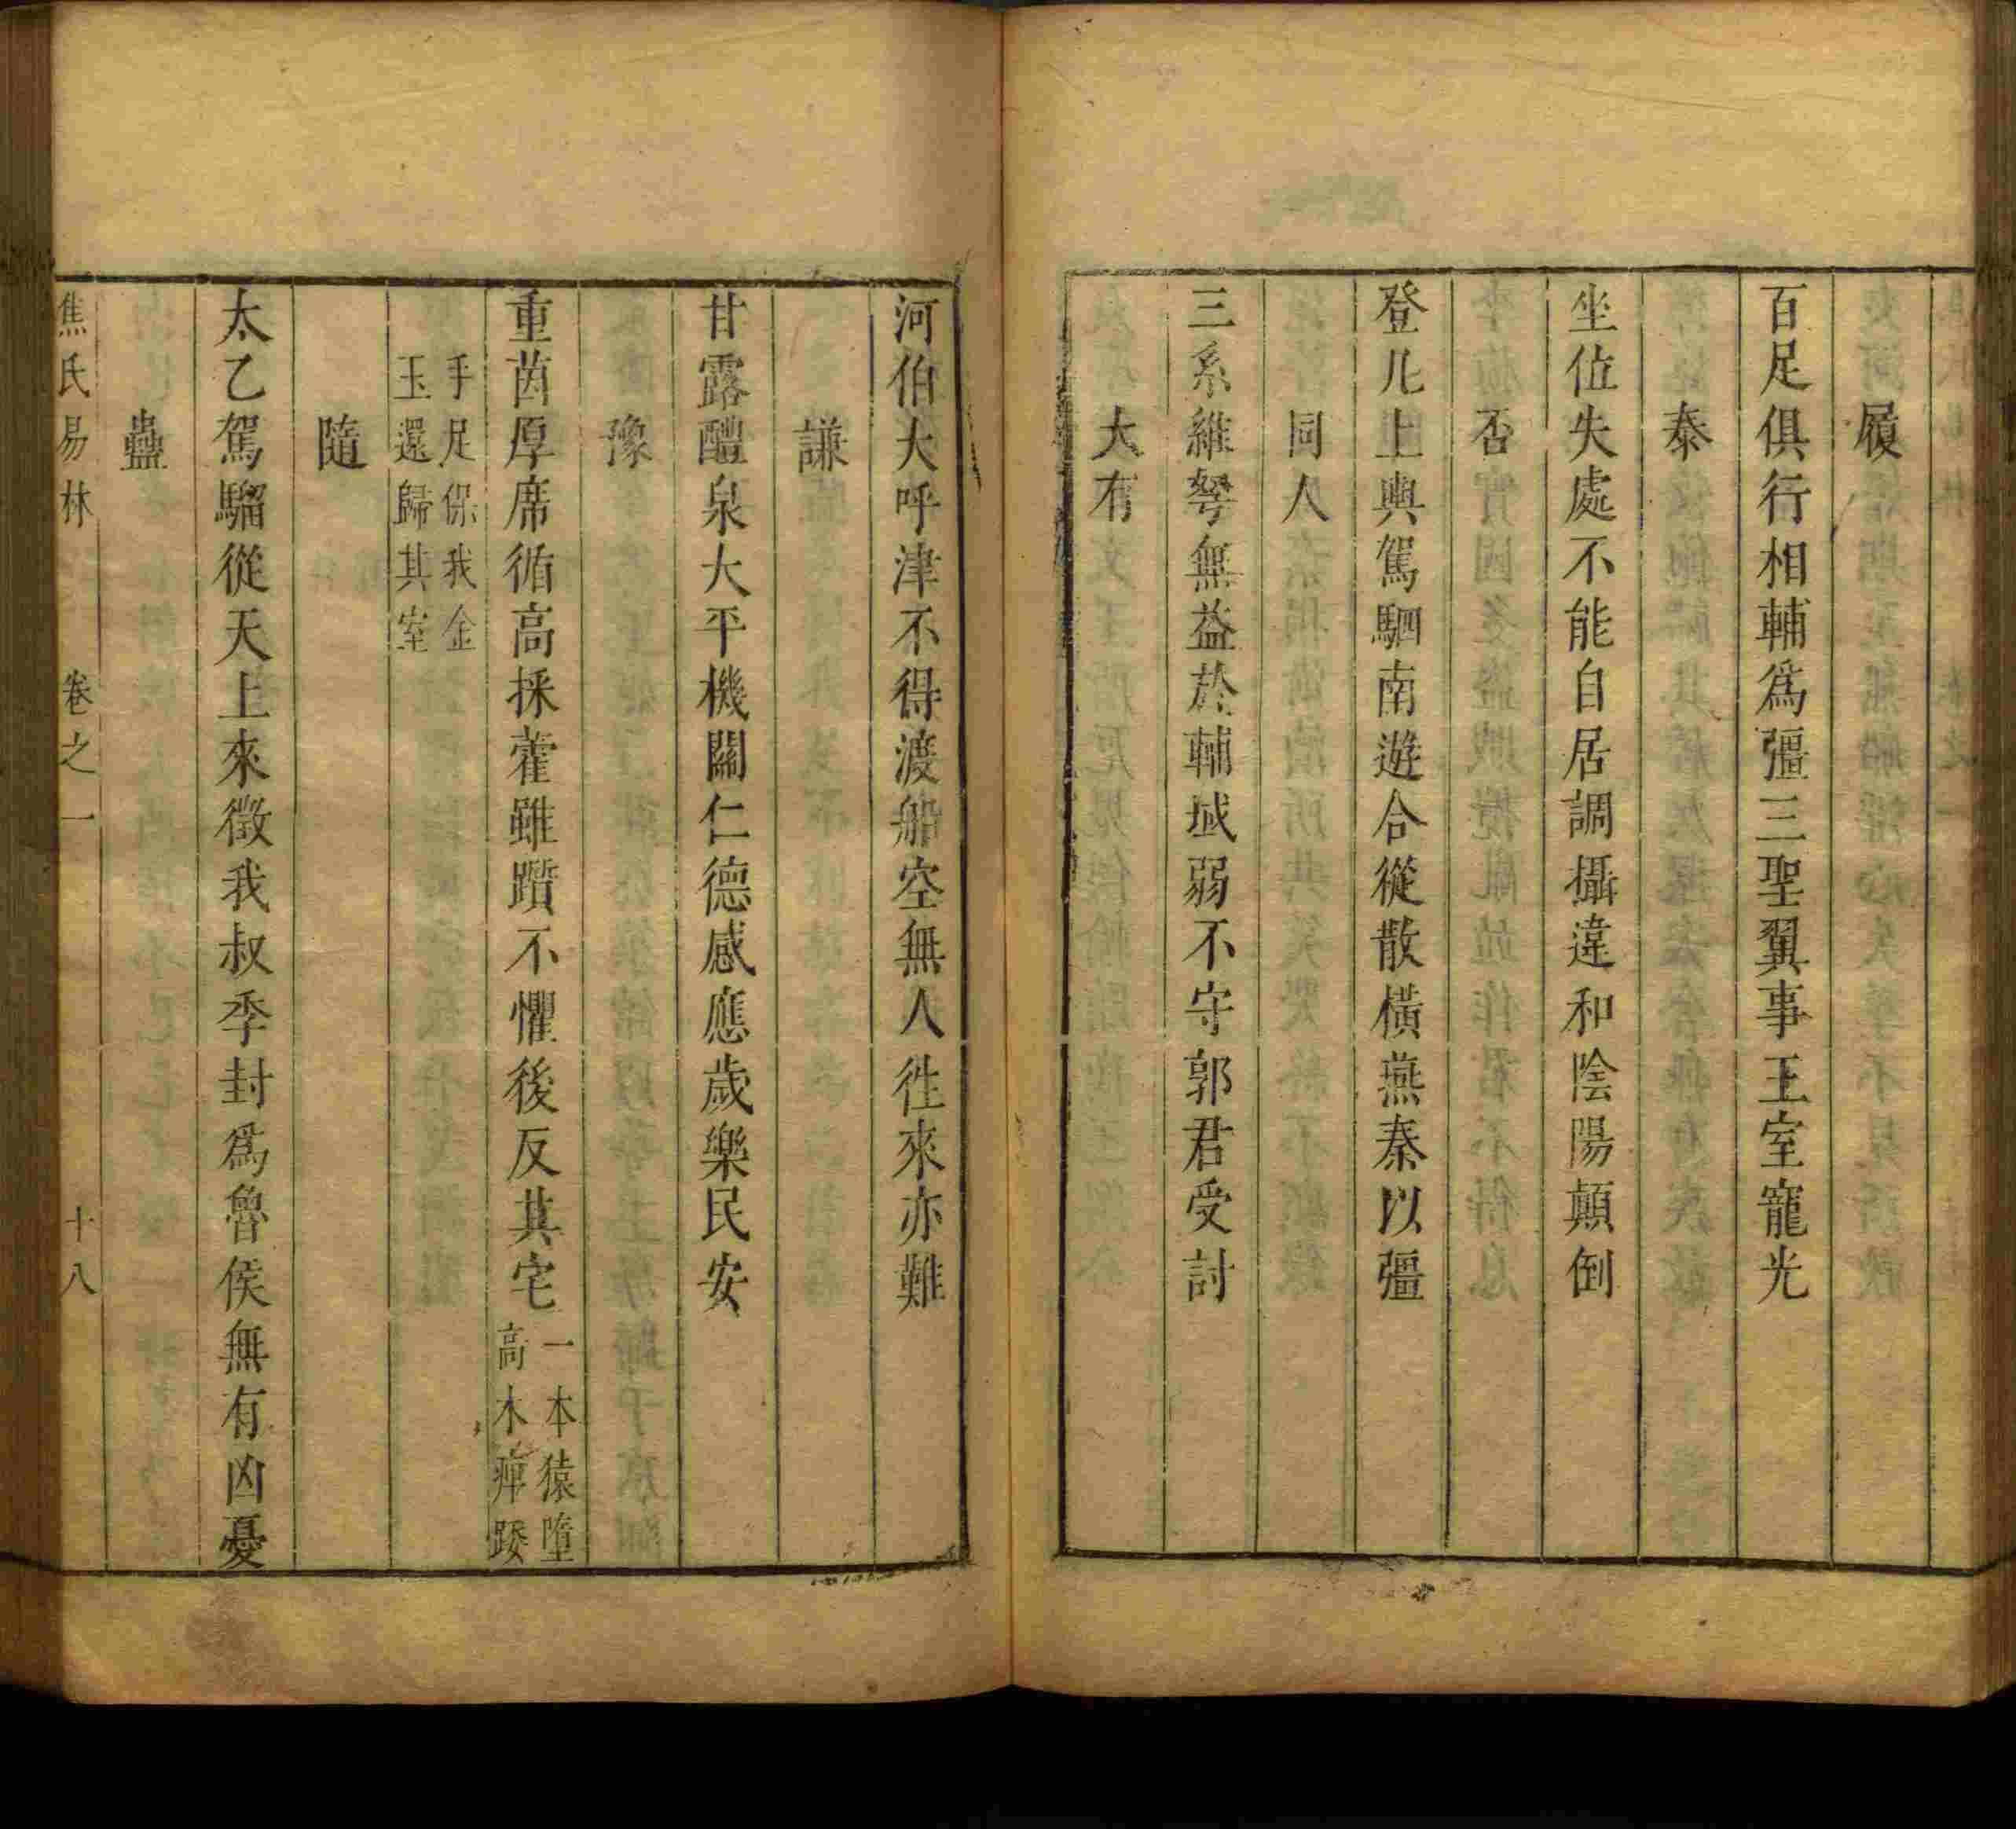 履
百足俱行相輔爲彊三聖翼事王室寵光
泰
坐位失處不能自居調攝違和陰陽顛倒
否
登几上輿駕駟南遊合從散橫燕秦以彊
同人
三系維弩無益於輔城弱不守郭君受討
大有
河伯大呼津不得渡船空無人徃來亦難
謙
甘露醴泉大平機關仁德感應歲樂民安
豫
重茵厚席循高採藿雖躓不懼後反其宅
一本猿墮
高木痺踒
手足保我金
玉還歸其室
隨
太乙駕騮從天上來徵我叔季封爲魯侯無有凶憂
蠱
焦氏易林 卷之一 十八